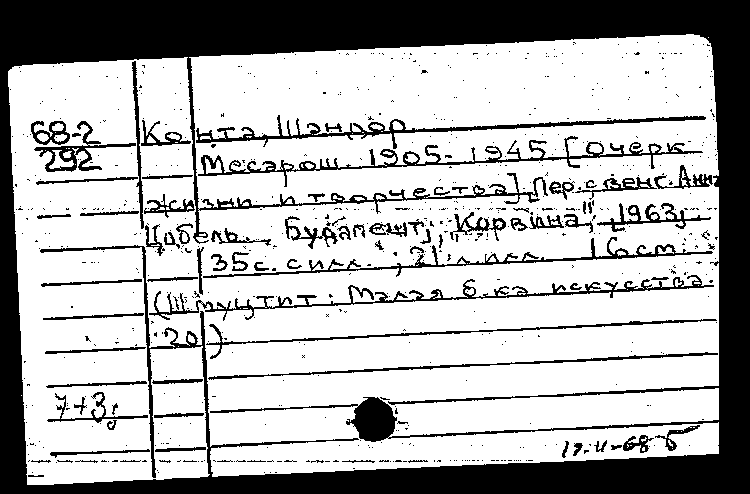 68-2 Конта, Шандор.
292 Месарош. 1905-1945 [Очерк
жизни и творчества]. Пер. с венг. Анны
Цобель. Будапешт, "Корвина", [1963].
35 с. с илл.; 21 л. илл. 16 см.
(Штуцтит: Малая б-ка искусства.
20)
7+3